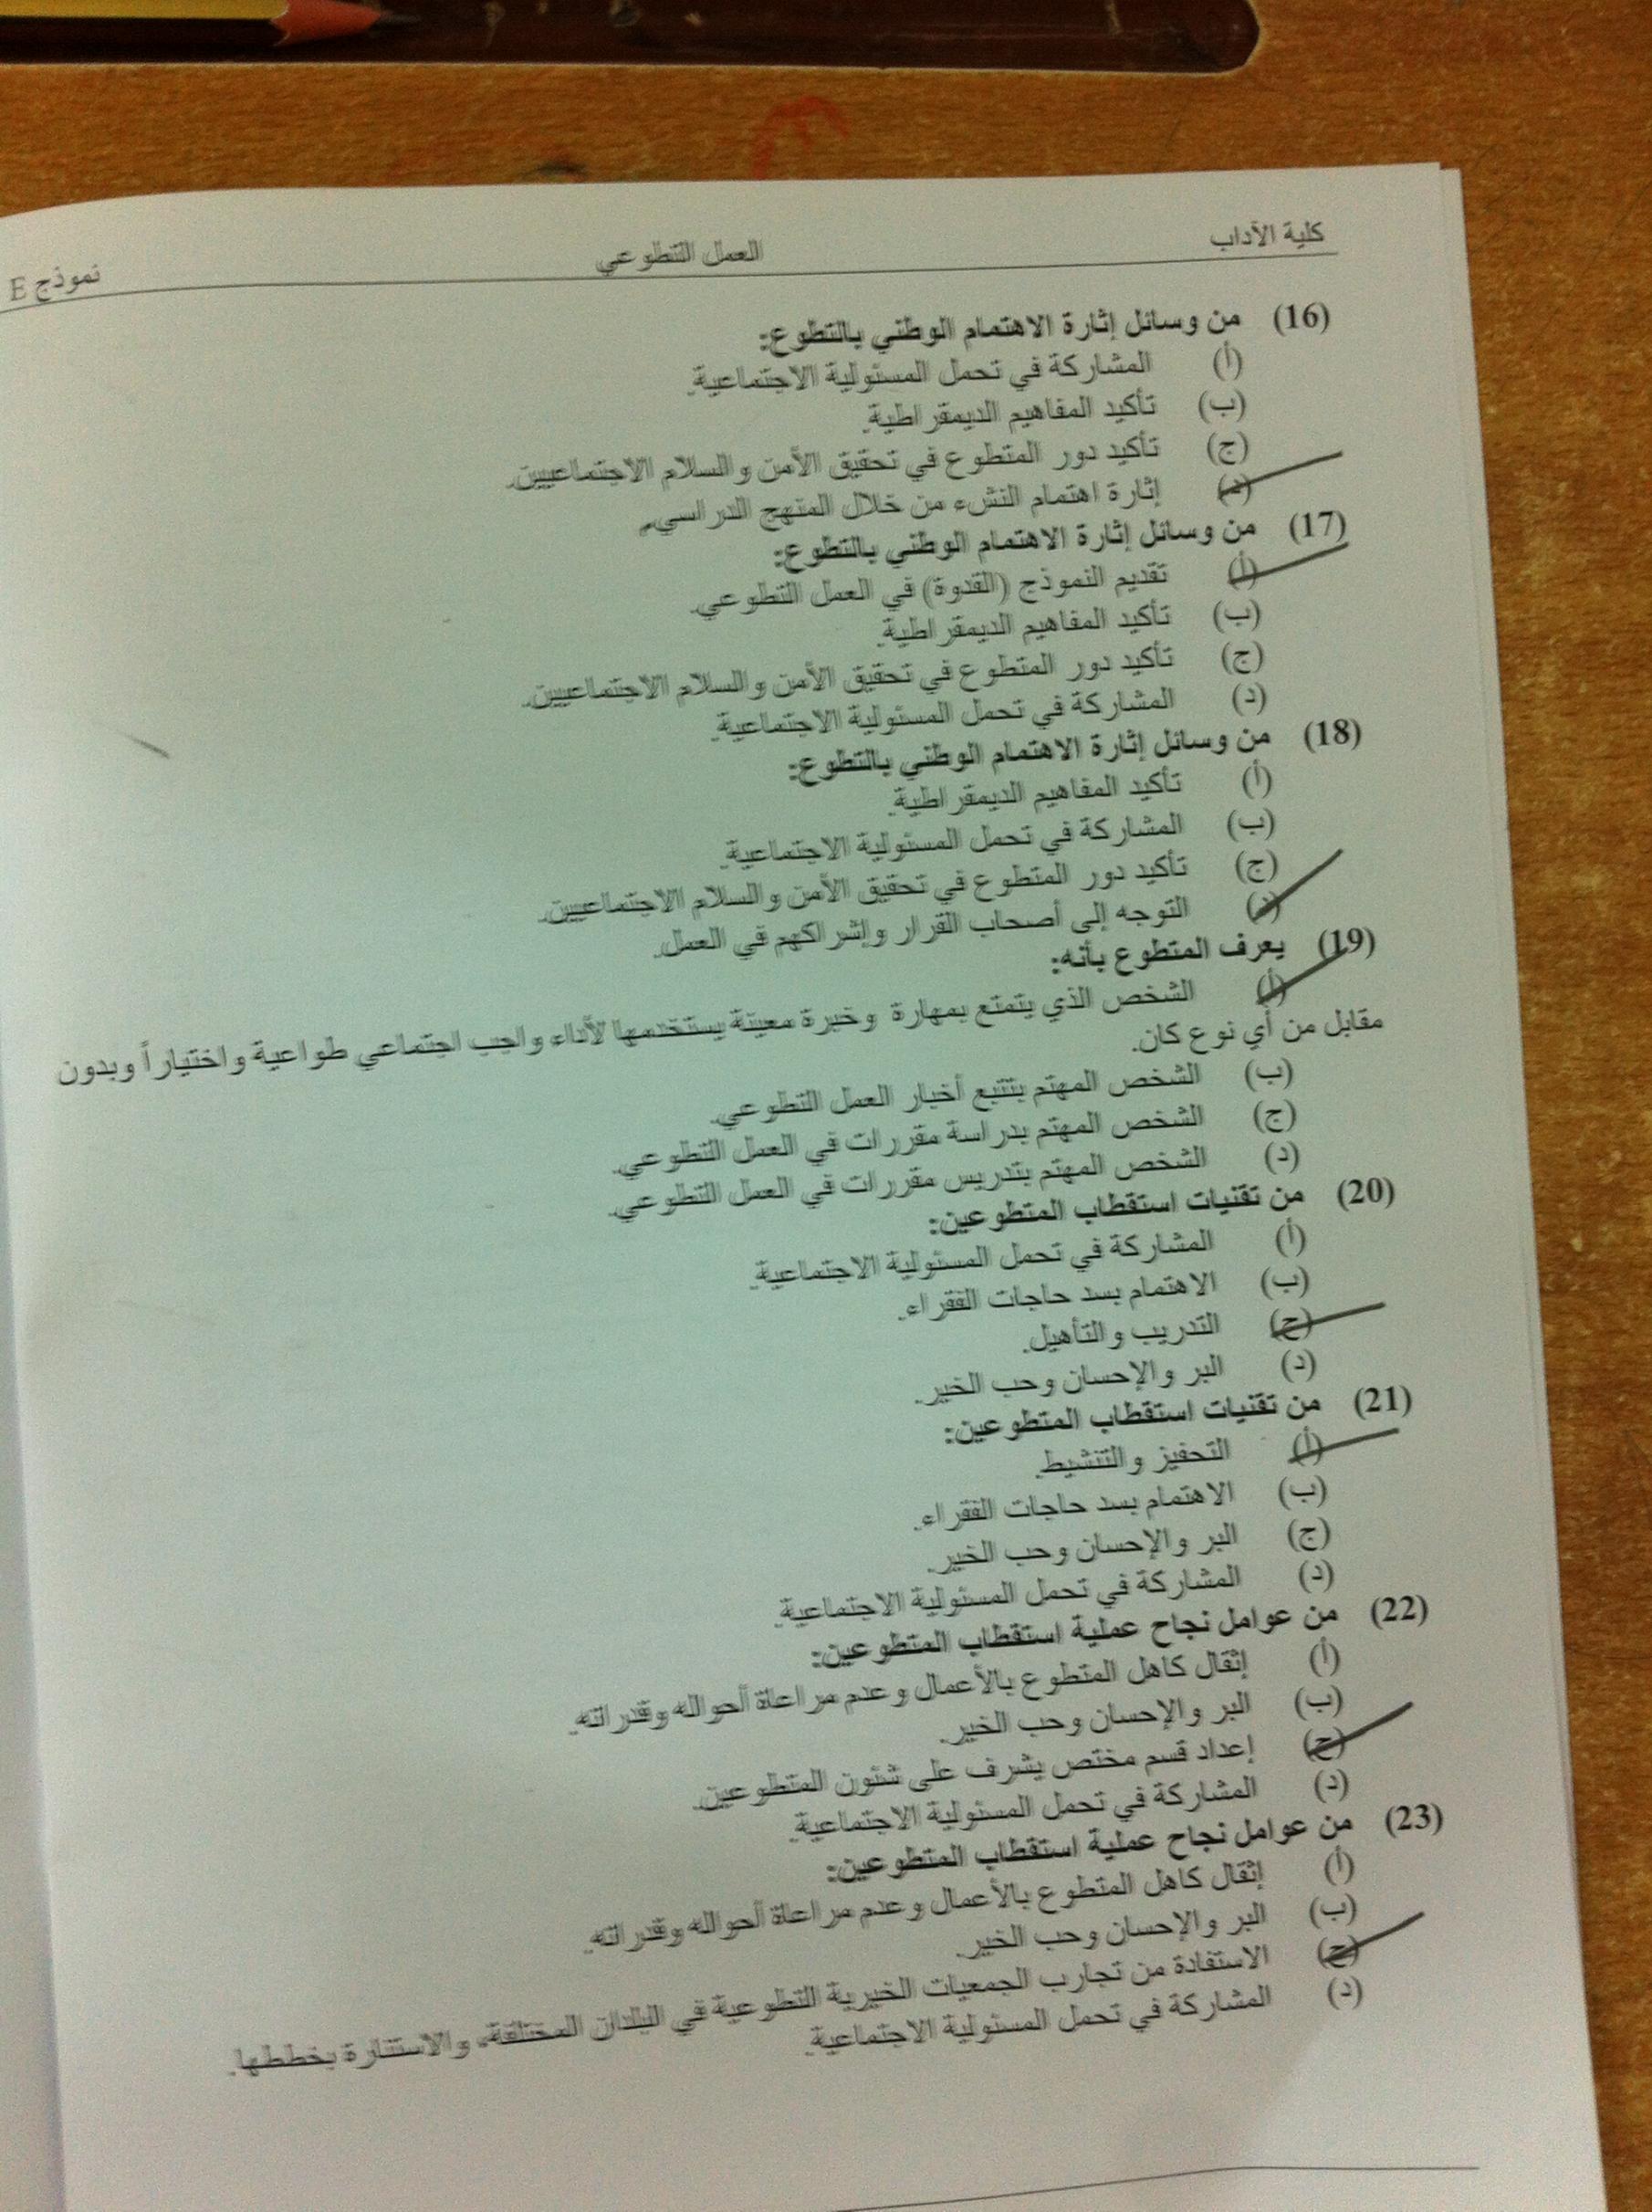 كلية الآداب العمل التطوعي نموذج E
(16) من وسائل إثارة الاهتمام الوطني بالتطوع:
(أ) المشاركة في تحمل المسئولية الاجتماعية.
(ب) تأكيد المفاهيم الديمقراطية.
(ج) تأكيد دور المتطوع في تحقيق الأمن والسلام الاجتماعيين.
(د) إثارة اهتمام النشء من خلال المنهج الدراسي.
(17) من وسائل إثارة الاهتمام الوطني بالتطوع:
(أ) تقديم النموذج (القدوة) في العمل التطوعي.
(ب) تأكيد المفاهيم الديمقراطية.
(ج) تأكيد دور المتطوع في تحقيق الأمن والسلام الاجتماعيين.
(د) المشاركة في تحمل المسئولية الاجتماعية.
(18) من وسائل إثارة الاهتمام الوطني بالتطوع:
(أ) تأكيد المفاهيم الديمقراطية.
(ب) المشاركة في تحمل المسئولية الاجتماعية.
(ج) تأكيد دور المتطوع في تحقيق الأمن والسلام الاجتماعيين.
(د) التوجه إلى أصحاب القرار وإشراكهم في العمل.
(19) يعرف المتطوع بأنه:
(أ) الشخص الذي يتمتع بمهارة وخبرة معينة يستخدمها لأداء واجب اجتماعي طواعية واختياراً وبدون
مقابل من أي نوع كان.
(ب) الشخص المهتم بتتبع أخبار العمل التطوعي.
(ج) الشخص المهتم بدراسة مقررات في العمل التطوعي.
(د) الشخص المهتم بتدريس مقررات في العمل التطوعي.
(20) من تقنيات استقطاب المتطوعين:
(أ) المشاركة في تحمل المسئولية الاجتماعية.
(ب) الاهتمام بسد حاجات الفقراء.
(ج) التدريب والتأهيل.
(د) البر والإحسان وحب الخير.
(21) من تقنيات استقطاب المتطوعين:
(أ) التحفيز والتنشيط.
(ب) الاهتمام بسد حاجات الفقراء.
(ج) البر والإحسان وحب الخير.
(د) المشاركة في تحمل المسئولية الاجتماعية.
(22) من عوامل نجاح عملية استقطاب المتطوعين:
(أ) إثقال كاهل المتطوع بالأعمال وعدم مراعاة أحواله وقدراته.
(ب) البر والإحسان وحب الخير.
(ج) إعداد قسم مختص يشرف على شئون المتطوعين.
(د) المشاركة في تحمل المسئولية الاجتماعية.
(23) من عوامل نجاح عملية استقطاب المتطوعين:
(أ) إثقال كاهل المتطوع بالأعمال وعدم مراعاة أحواله وقدراته.
(ب) البر والإحسان وحب الخير.
(ج) الاستفادة من تجارب الجمعيات الخيرية التطوعية في البلدان المختلفة، والاستنارة بخططها.
(د) المشاركة في تحمل المسئولية الاجتماعية.